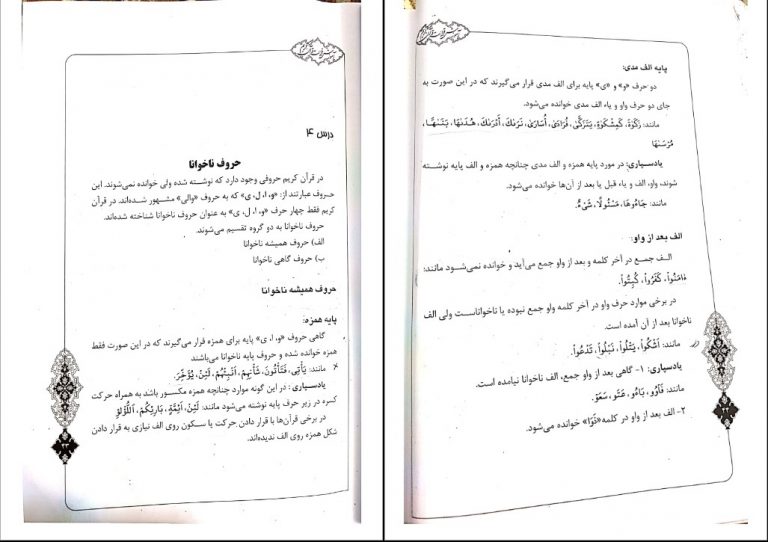 درس ۴
حروف ناخوانا
در قرآن کریم حروفی وجود دارد که نوشته شده ولی خوانده نمی‌شوند. این
حروف عبارتند از: «و، ا، ل، ی» که به حروف «والی» مشهور شده‌اند. در قرآن
کریم فقط چهار حرف «و، ا، ل، ی» به عنوان حروف ناخوانا شناخته شده‌اند.
حروف ناخوانا به دو گروه تقسیم می‌شوند.
الف) حروف همیشه ناخوانا
ب) حروف گاهی ناخوانا
حروف همیشه ناخوانا
پایه همزه:
گاهی حروف «و، ا، ی» پایه برای همزه قرار می‌گیرند که در این صورت فقط
همزه خوانده شده و حروف پایه ناخوانا می‌باشند
مانند: یَأْتِی، فَتَأْتُونَ، شَأْنِهِمْ، أَنْبِئْهُمْ، لَئِنْ، یُؤَخِّرَ.
یادسپاری: در این گونه موارد چنانچه همزه مکسور باشد به همراه حرکت
کسره در زیر حرف پایه نوشته می‌شود مانند: لَئِنْ، أَئِمَّةَ، بَارِئِکُمْ، اَللُّؤْلُؤِ
در برخی قرآن‌ها با قرار دادن حرکت یا سکون روی الف نیازی به قرار دادن
شکل همزه روی الف ندیده‌اند.
۲۳
پایه الف مدی:
دو حرف «و» و «ی» پایه برای الف مدی قرار می‌گیرند که در این صورت به
جای دو حرف واو و یاء، الف مدی خوانده می‌شود.
مانند: زَکٰوةَ، کَمِشْکٰوةٍ، یَتَزَکّٰی، فُرَادٰی، أُسَارٰی، نَرٰىكَ، أَدْرٰىكَ، هُدٰىهَا، بَنٰىهَا،
مُرْسٰىهَا
یادسپاری: در مورد پایه همزه و الف مدی چنانچه همزه و الف پایه نوشته
شوند، واو، الف و یاء قبل یا بعد از آن‌ها خوانده می‌شود.
مانند: جَاءُوهَا، مَسْئُولًا، شَیْءٌ.
الف بعد از واو:
الف جمع در آخر کلمه و بعد از واو جمع می‌آید و خوانده نمی‌شود مانند:
ءَامَنُواْ، کَفَرُواْ، کُبِتُواْ.
در برخی موارد حرف واو در آخر کلمه واو جمع نبوده یا ناخواناست ولی الف
ناخوانا بعد از آن آمده است.
مانند: أَشْکُواْ، یَتْلُواْ، نَبْلُواْ، تَدْعُواْ.
یادسپاری: ۱- گاهی بعد از واو جمع، الف ناخوانا نیامده است.
مانند: فَآءُو، بَاءُو، عَتَوْ، سَعَوْ.
۲- الف بعد از واو در کلمه «تَوّا» خوانده می‌شود.